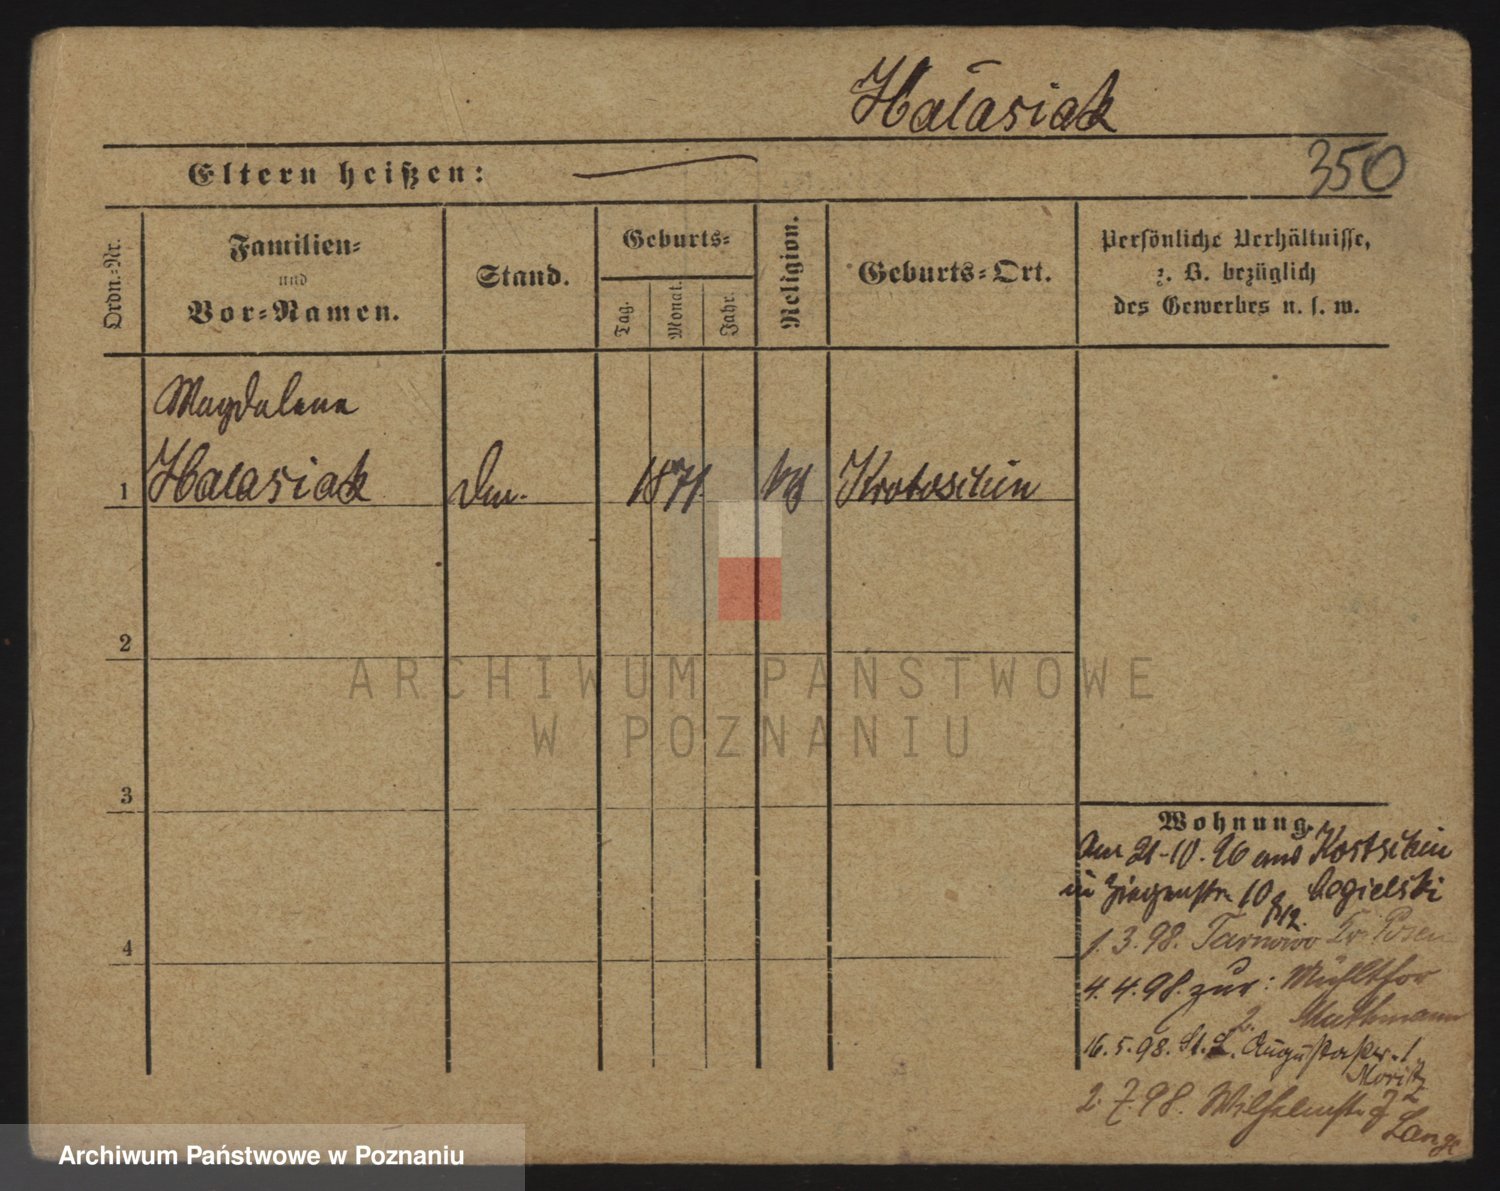 Hałasiak
350
Eltern heißen:
Ordn.=Nr.
Familien=
und
Vor=Namen.
Stand.
Geburts=
Tag.
Monat.
Jahr.
Religion.
Geburts=Ort.
Persönliche Verhältnisse,
z. B. bezüglich
des Gewerbes u. s. w.
Magdalena
1 Hałasiak
1871.
Krotoschin
2
ARCHIWUM PAŃSTWOWE
W POZNANIU
3
Wohnung.
Am 21-10.96 aus Kostschin
in Ziegenstr. 10 Cegielski
1.3.98. Tarnowo Kr. Posen
4.4.98. zur: Mühlthor
4
2. Muthmann
16.5.98. St. L. Augustastr. 1
Moritz
2.7.98. Wilhelmstr.
Lange
Archiwum Państwowe w Poznaniu